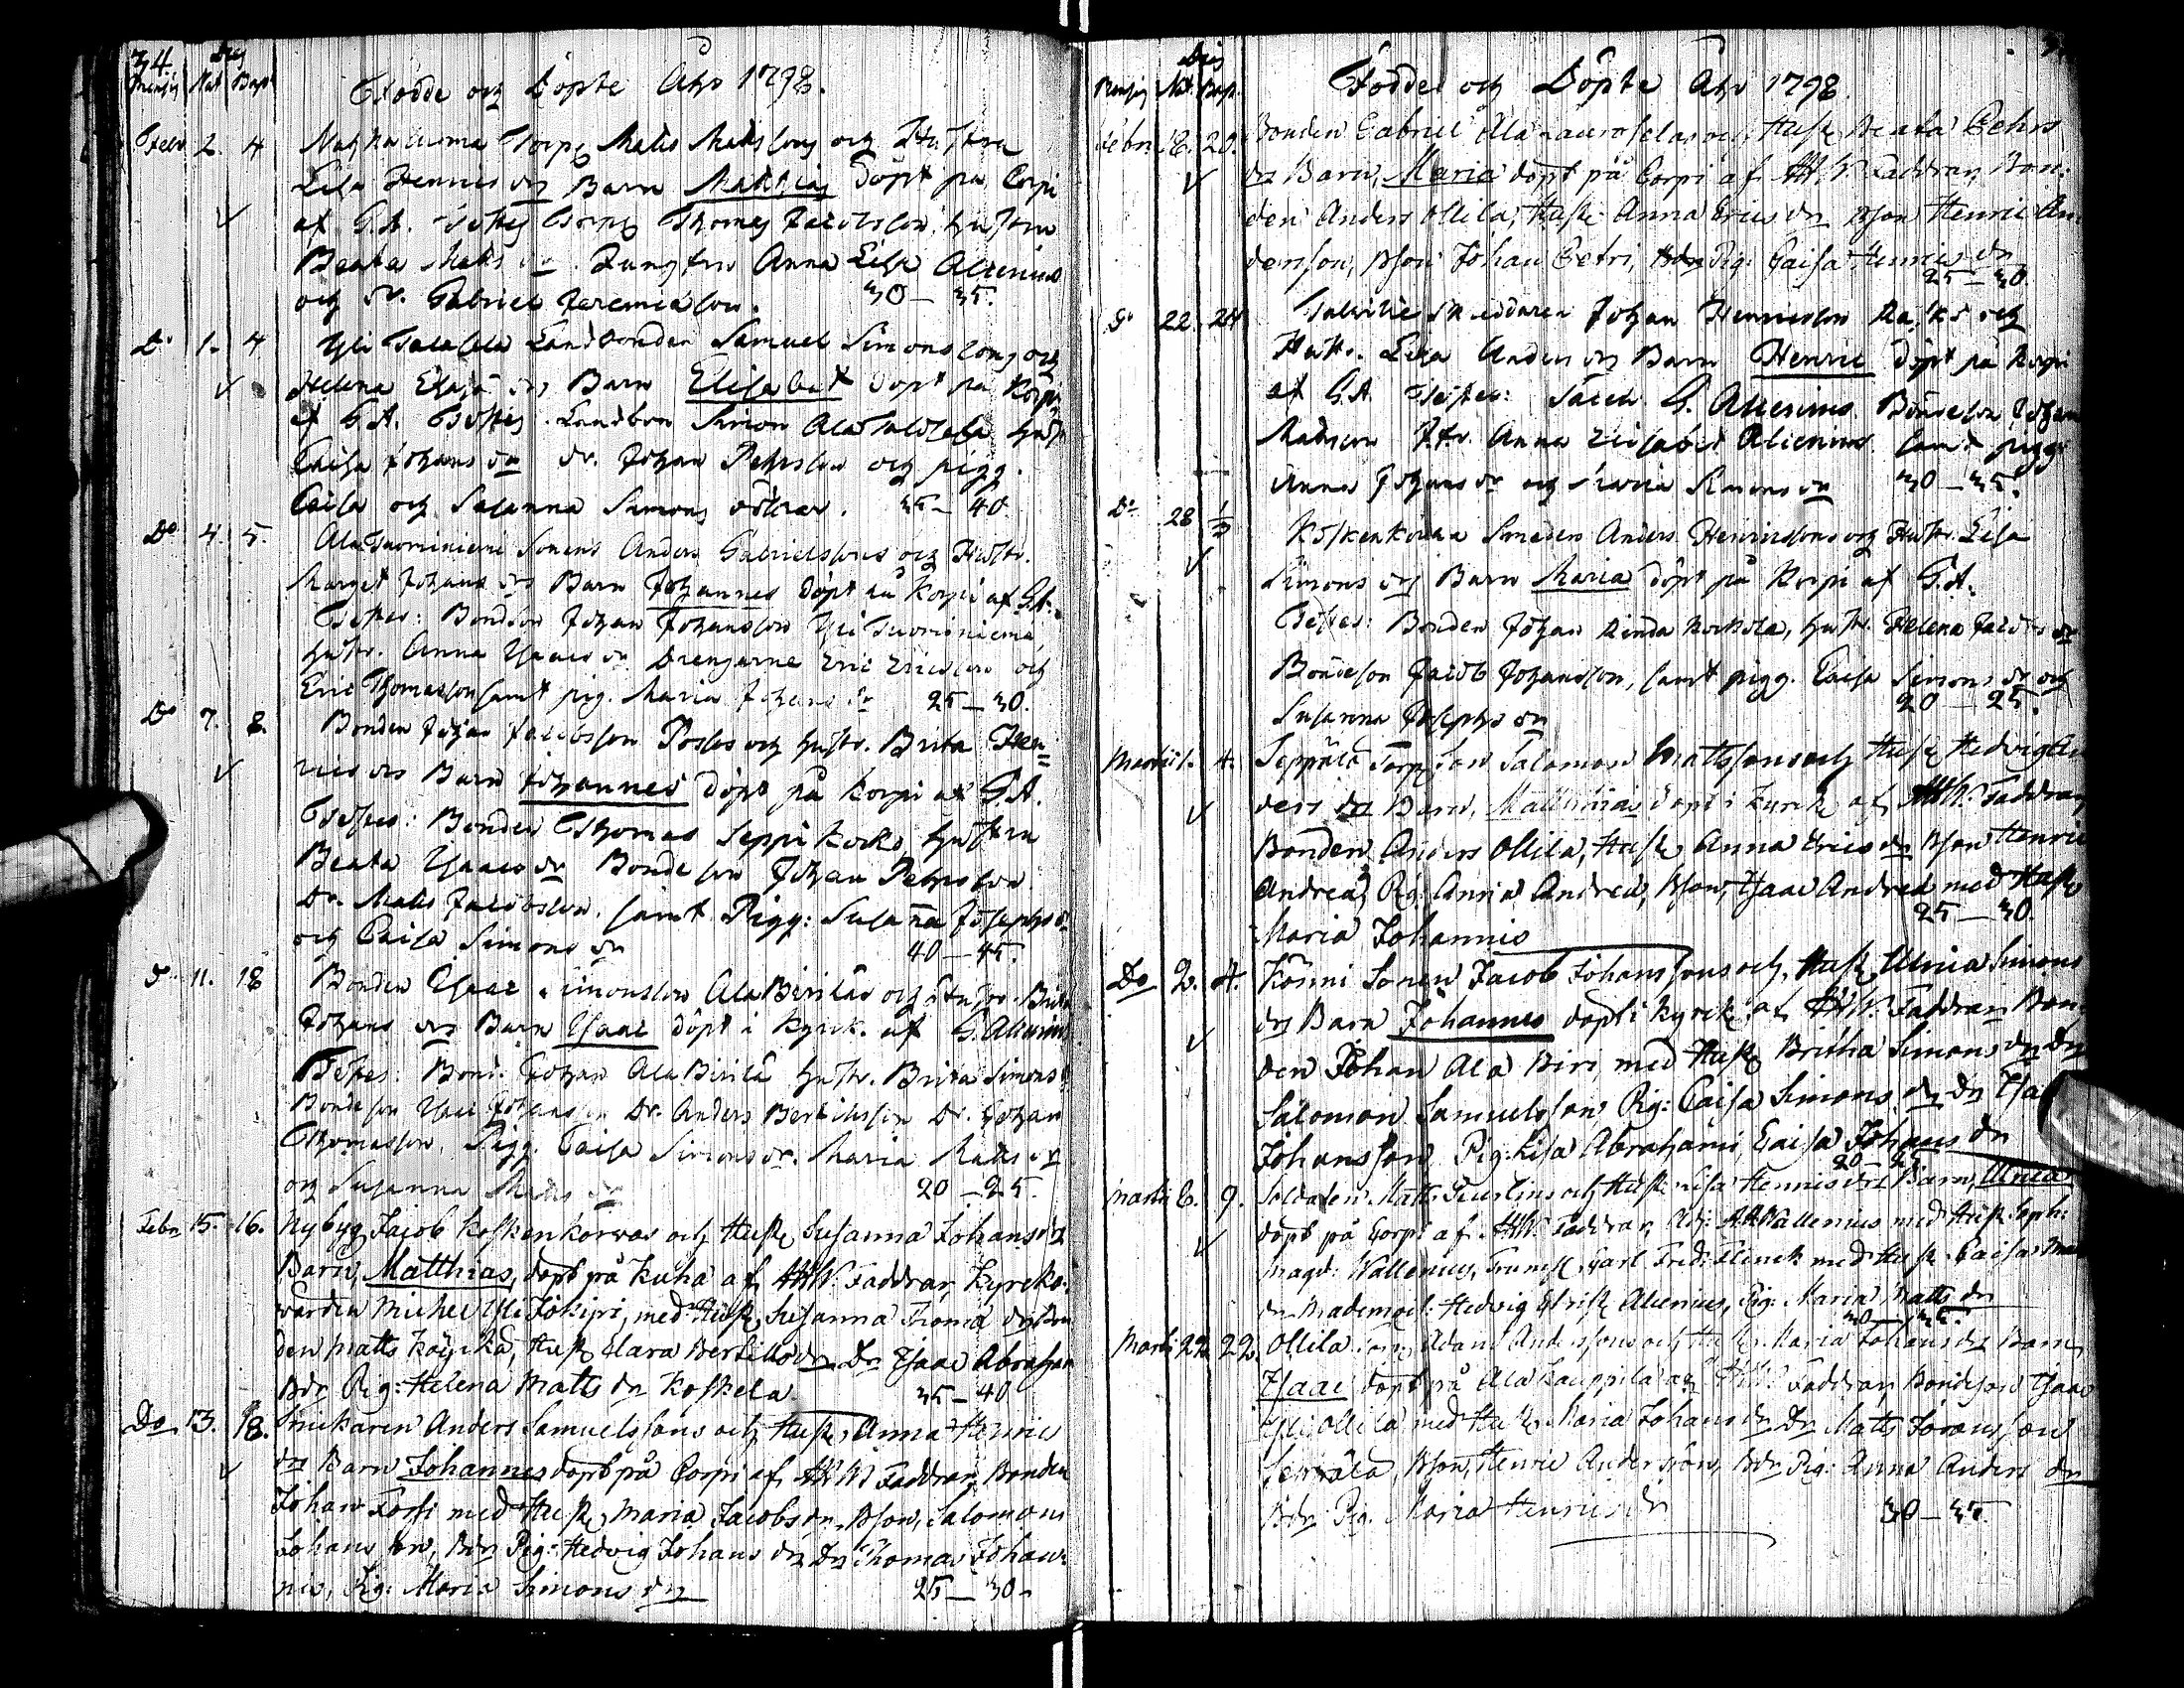 34.
Dies
Mensis Nat Bapt
Födde och Döpte Åhr 1798.
Febr 2. 4 Torp. Matts Matsons och Hustru
Lisa Henrics drs Barn Matthias döpt på Corpi
af G.A. Testes Torp. Thomas Jacobsson, hustru
Beata Matts dr. Jungfru Anna Lisa Alcenius
och dr. Gabriel Jeremiasson. 30 — 35.
Do 1. 4 Yli Landbonden Samuel Simonsons och
Helena drs Barn Elisabet döpt på Korpi
af G.A. Testes. Landbon Simon hustr
Caisa Johans dr dr. Johan Pehrsson och pigg.
Caisa och Susanna Simons döttrar. 35 — 40
Do 4. 5. Ala Tuominiemi Sonens Anders Gabrielssons och Hustr.
Marget Johans drs Barn Johannes döpt på Korpi af G.A.
Testes: Bondson Johan Johansson Yli Tuominiemi
hustr. Anna Isaacs dr Drengarne Eric Ericsson och
Eric Thomasson samt pig. Maria Johans dr 25 — 30.
Do 7. 8. Bonden Johan Jacobsson och hustr. Brita Hen-
rics drs Barn Johannes döpt på Korpi af G.A.
Testes: Bonden Thomas Seppi hustru
Beata Isaacs dr Bondeson Johan Pehrsson
Dr. Matts Jacobsson, samt Pigg: Susanna Josephs dr
och Caisa Simons dr 40 — 45.
Do 11. 18 Bonden Isaac Simonsson Ala Birilä och Hustr. Brita
Johans drs Barn Isaac döpt i Kyrck. af G. Alcenius
Testes: Bond. Johan Ala Birilä hustr. Brita Simons dr
Bondeson Isac Johansson Dr. Anders Bertilsson Dr. Johan
Thomasson. Pigg. Caisa Simons dr. Maria Matts dr
och Susanna Matts dr 20 — 25.
Febr 15. 16. Nybyg Jacob Koskenkorvas och Hust Susanna Johans drs
Barn, Matthias, döpt på Kuha af AHW. Faddrar, Kyrcko-
värden Michel Yli Jokipi, med Hust Susanna dr Bon-
den Matts Köykkä, Hust Clara Bertils dr Dr Isaac Abraham
Bdr Pig: Helena Matts dr Koskela 35 — 40
Do 13. 18. Anders Samuelssons och Hust Anna Henrics
drs Barn Johannes döpt på Corpi af AHW Faddrar, Bonden
Johan med Hust, Maria Jacobs dr. Bson, Salomon
Johansson, Bdr Pig: Hedvig Johans dr Dr Thomas Johan-
nis, Pig: Maria Simons dr 25 — 30.
Dies
Mensis Nat. Bapt.
Födde och Döpte Åhr 1798
Febr. 18. 20. Bonden Gabriel Ala och Hust Beata Pehrs
drs Barn, Maria döpt på Corpi af AHW Faddrar, Bon-
den Anders Ollila, Hust Anna Erics dr Bson Henric An-
dersson, Bson Johan Petri, Pig: Caisa Henrics dr
25 — 30.
Do 22. 24 Johan Henricsson och
Hustr. Lisa Anders drs Barn Henric döpt på Korpi
af G.A. Testes: G. Alcenius Bondeson Johan
Matsson Jfr. Anna Elisabet Alcenius samt pigg
Anna Johans dr och Maria Simons dr 30 — 35.
Do 28 Koskenkorva Smeden Anders Henricssons och Hustr. Lisa
Simons drs Barn Maria döpt på Korpi af G.A.
Testes: Bonden Johan Rinda hustr. Helena Jacobs dr
Bondeson Jacob Johansson, samt pigg. Caisa Simons dr och
Susanna Josephs dr 20 — 25.
Martii 1. 4. Seppälä Torp Son Salomon Mattssons och Hust Hedvig An-
ders drs Barn, Matthias döpt i Kyrck af AHW. Faddrar
Bonden Anders Ollila, Hust Anna Erics dr Bson Henric
Andreæ, Pig: Anna Andreæ, Bson, Isaac Andreæ med Hust
Maria Johannis 25 — 30.
Do 2. 4. Könni Sonen Jacob Johanssons och Hust Ulrica Simons
drs Barn Johannes döpt i Kyrck af AHW. Faddrar Bon-
den Johan Ala Biri, med Hust Britha Simons dr Dr
Salomon Samuelsson, Pig: Caisa Simons dr Dr Isa
Johansson Pig: Lisa Abrahami, Caisa Johans dr
20 — 25
Martii 6. 9. Soldaten Matts och Hust Lisa Henrics drs Barn, Ulrica
döpt på Corpi af AHW. Faddrar, A.H. Wallenius med Hust Soph:
Magd: Wallenius, Carl Fred: Flinck med Hust Caisa
dr Mademois: Hedvig Alcenius, Pig: Maria Matts dr
30 — 35.
Martii 22. 22. Ollila Adam Anderssons och Hust Maria Johans drs Barn,
Isaac döpt på Ala Kauppila af AHW. Faddrar Bondeson Isaac
Yli Ollila med Hust Maria Johans dr Dr Matts Johansson
Bson, Henric Andersson, Bdr Pig: Anna Anders dr
Bdr Pig. Maria Henrics dr 30 — 35